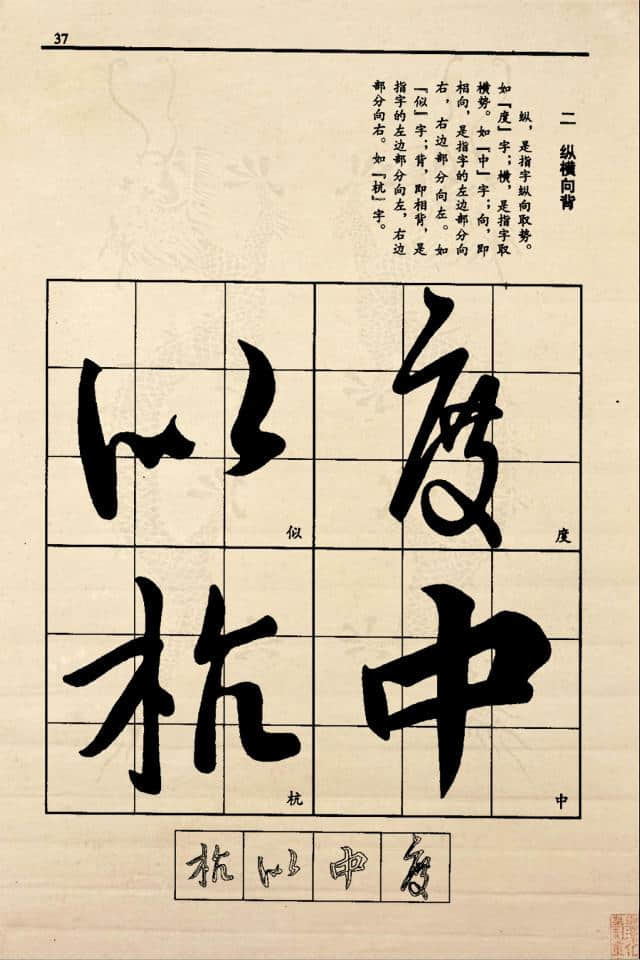 37
二 纵横向背
纵,是指字纵向取势。
如『度』字;横,是指字取
横势。如『中』字;向,即
相向,是指字的左边部分向
右,右边部分向左。如
『似』字;背,即相背,是
指字的左边部分向左,右边
部分向右。如『杭』字。
度
度
中
中
似
似
杭
杭
度中似杭